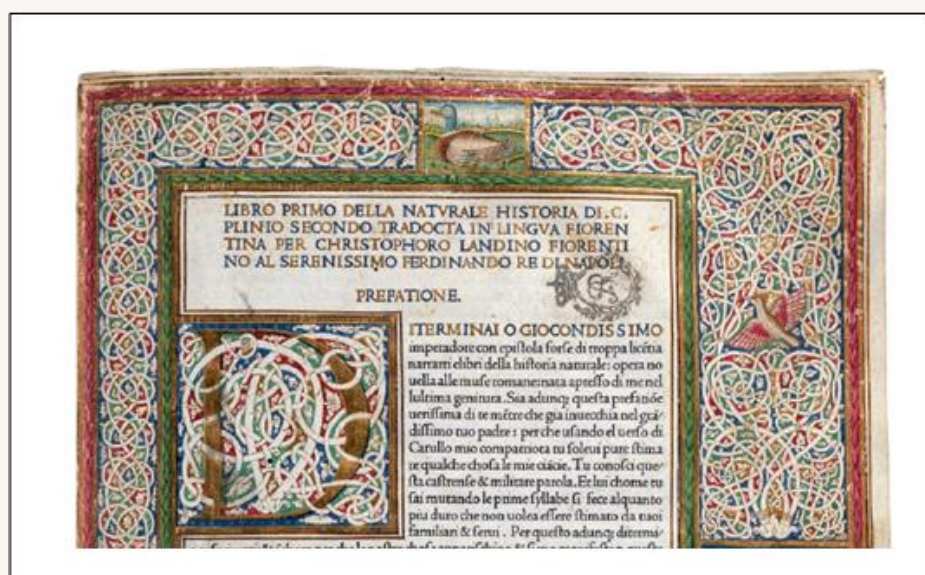 LIBRO PRIMO DELLA NATVRALE HISTORIA DI. C.
PLINIO SECONDO TRADOCTA IN LINGVA FIOREN
TINA PER CHRISTOPHORO LANDINO FIORENTI
NO AL SERENISSIMO FERDINANDO RE DI NAPOLI
PREFATIONE.
D
ITERMINAI O GIOCONDIS SIMO
imperadore con epistola forse di troppa licẽtia
narrarti elibri della historia naturale: opera no
uella alle muse romane: nata apresso di me nel
lultima genitura. Sia adunqȝ questa prefatiõe
uerissima di te mẽtre che gia inuecchia nel grã
dissimo tuo padre: per che usando el uerso di
Catullo mio compatriota tu soleui pure stima
re qualche chosa le mie ciãcie. Tu conosci que
sta castrense & militare parola. Et lui chome tu
sai mutando le prime syllabe si fece alquanto
piu duro che non uolea essere stimato da tuoi
familiari & serui. Per questo adunqȝ ditermi